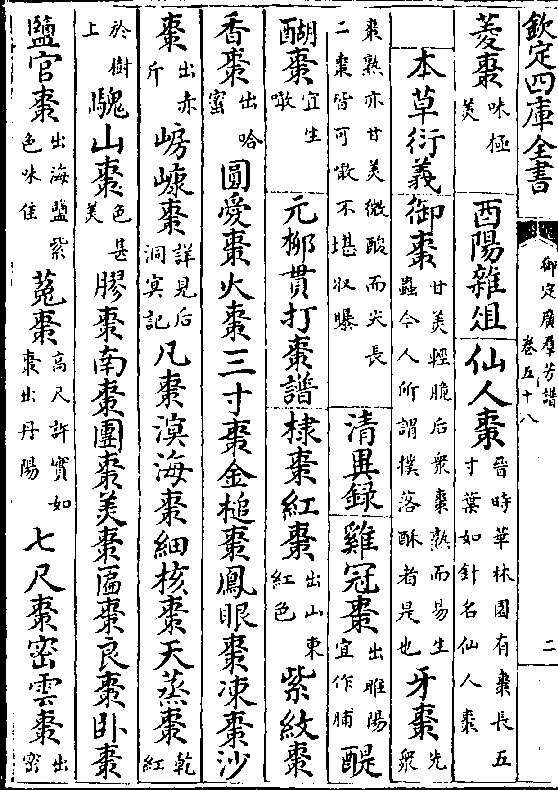 欽定四庫全書 御定廣羣芳譜 卷五十八 二
菱棗味極美 酉陽雜俎 仙人棗晉時華林園有棗長五寸葉如針名仙人棗
本草衍義 御棗甘美輕脆后衆棗熟而易生蟲今人所謂撲落酥者是也 牙棗先衆
棗熟亦甘美微酸而尖長二棗皆可噉不堪収曝 清異録 雞冠棗出睢陽宜作脯 醍
醐棗宜生噉 元栁貫打棗譜 棣棗紅棗出山東紅色 紫紋棗
香棗出哈密 圓愛棗火棗三寸棗金槌棗鳳眼棗凍棗沙
棗出赤斤 嵻棗詳見后洞冥記 凡棗溟海棗細核棗天蒸棗乾紅
於樹上 騩山棗色甚美 膠棗南棗團棗美棗匾棗良棗卧棗
鹽官棗出海鹽紫色味佳 蒐棗高尺許實如棗出丹陽 七尺棗密雲棗出密